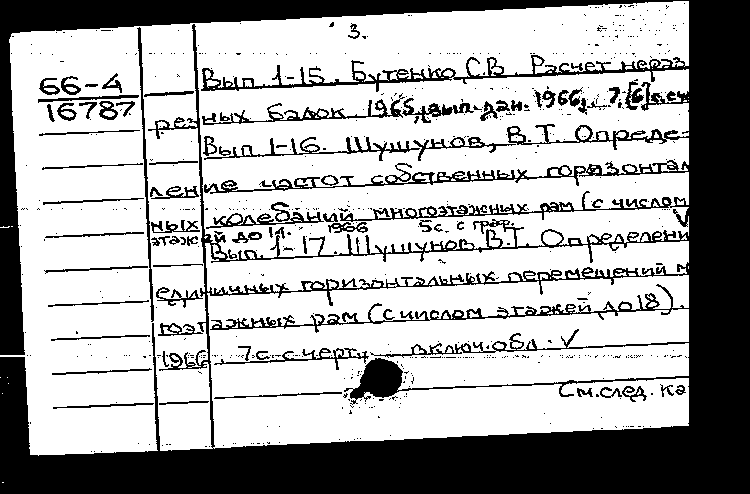 3.
66-4
16787
Вып. 1-15. Бутенко, С.В. Расчет нераз
резных балок. 1965, вып. дан. 1966, 7,[6]с.
Вып. 1-16. Шушунов, В.Т. Опреде-
ление частот собственных горизонтал
ных колебаний многоэтажных рам (с числом
этажей до 1 1966 5с. с граф. V
Вып. 1-17. Шушунов, В.Т. Определени
единичных горизонтальных перемещений м
гоэтажных рам (с числом этажей до 18).
1966, 7 с. с черт., включ. обл. V
См. след. ка